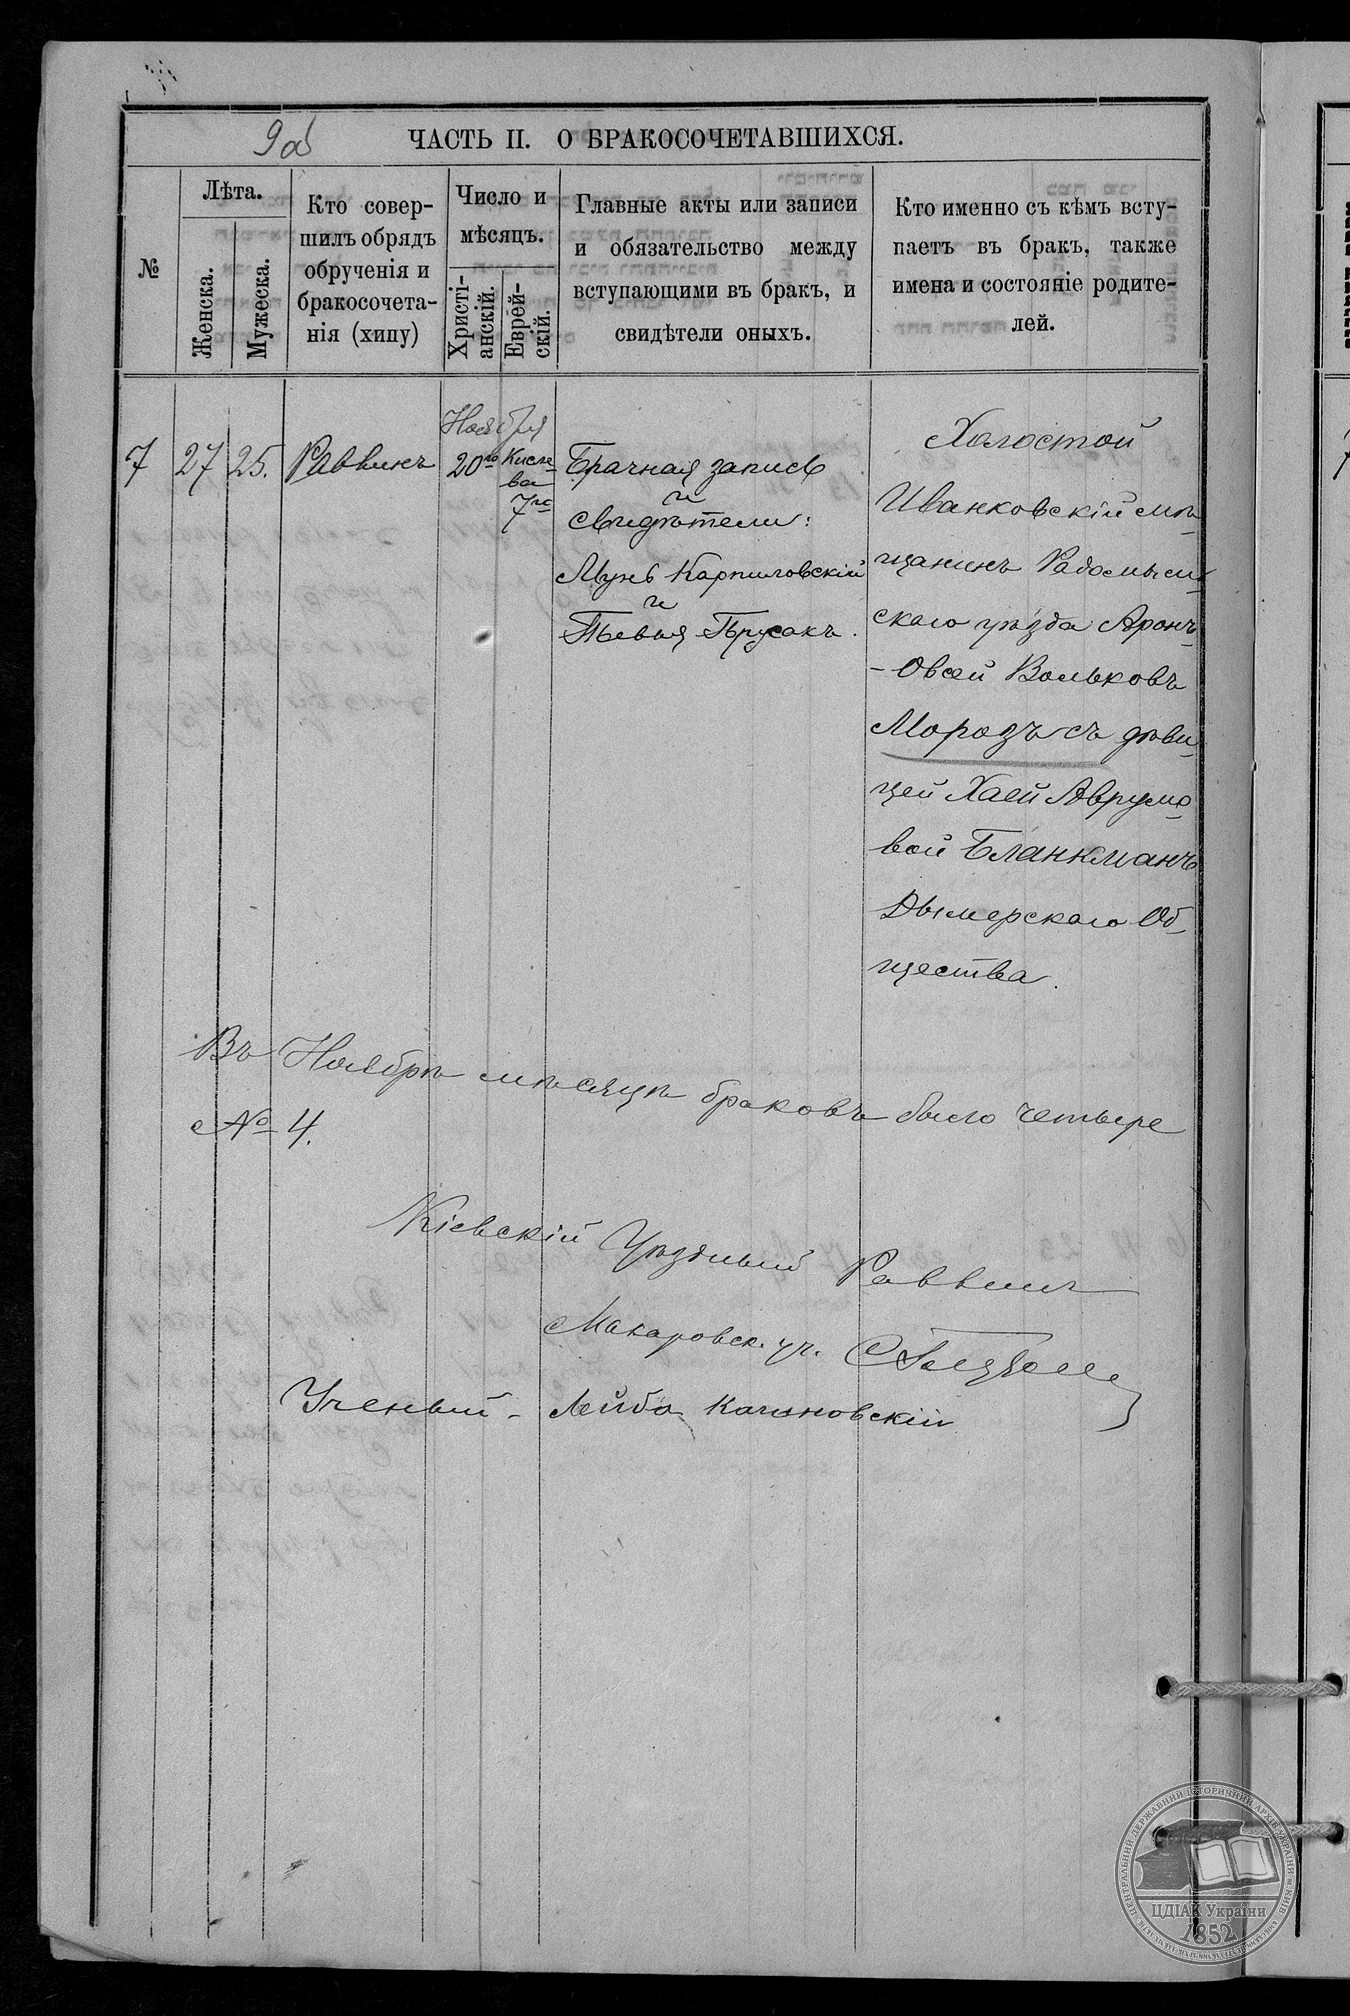 9об
ЧАСТЬ II. О БРАКОСОЧЕТАВШИХСЯ.
№
Лѣта.
Женска.
Мужеска.
Кто совер-
шилъ обрядъ
обрученія и
бракосочета-
нія (хипу)
Число и
мѣсяцъ.
Христі-
анскій.
Еврей-
скій.
Главные акты или записи
и обязательство между
вступающими въ бракъ, и
свидѣтели оныхъ.
Кто именно съ кѣмъ всту-
паетъ въ бракъ, также
имена и состояніе родите-
лей.
7
27
25.
Раввинъ
Ноября
20го
Кисле-
ва
7го
Брачная запись
и
свидѣтели:
Мунь Карпиловскій
и
Тевья Прусакъ.
Холостой
Иванковскій мѣ-
щанинъ Радомысль-
скаго уѣзда Аронъ-
-Овсей Вольковъ
Морозъ съ дѣви-
цей Хаей Аврумо-
вой Бланкманъ
Дымерскаго Об-
щества.
Въ Ноябрѣ мѣсяцѣ браковъ было четыре
№ 4.
Кіевскій Уѣздный Раввинъ
Макаровск. уч.
Ученый - Лейба Качановскій
ЦЕНТРАЛЬНИЙ ДЕРЖАВНИЙ ІСТОРИЧНИЙ АРХІВ УКРАЇНИ М. КИЇВ
ЦДІАК України
1852